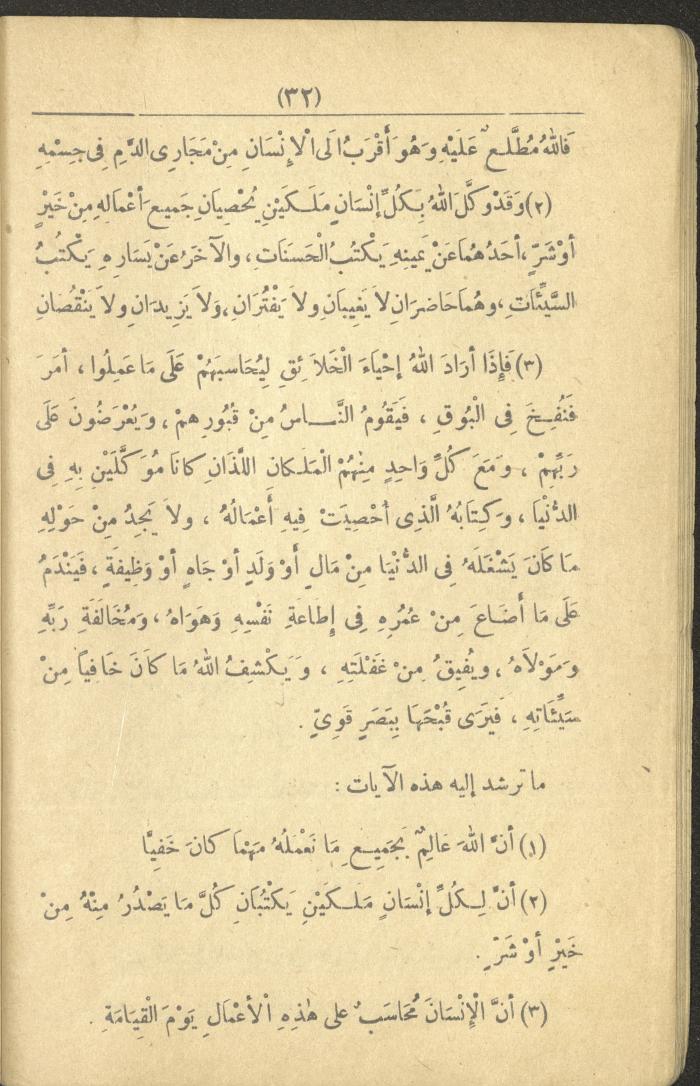 (٣٢)
فَاللهُ مُطَّلِعٌ عَلَيْهِ وَهُوَ أَقْرَبُ الَى الْإِنْسَانِ مِنْ مَجَارِى الدَّمِ فِى جِسْمِهِ
(٢) وَقَدْ وَكَّلَ اللهُ بِكُلِّ إِنْسَانٍ مَلَكَيْنِ يُحْصِيَانِ جَمِيعَ أَعْمَالِهِ مِنْ خَيْرٍ
أَوْ شَرٍّ ، أَحَدُهُمَا عَنْ يَمِينِهِ يَكْتُبُ الْحَسَنَاتِ ، والآخَرُ عَنْ يَسَارِهِ يَكْتُبُ
السَّيِّئَاتِ ، وهُمَا حَاضِرَانِ لاَ يَغِيبَانِ ولاَ يَفْتُرَانِ ، وَلاَ يَزِيدَانِ ولاَ يَنْقُصَانِ
(٣) فَإِذَا أَرَادَ اللهُ إِحْيَاءَ الْخَلاَئِقِ لِيُحَاسِبَهُمْ عَلَى مَا عَمِلُوا ، أَمَرَ
فَنُفِخَ فِى الْبُوقِ ، فَيَقُومُ النَّاسُ مِنْ قُبُورِهِمْ ، وَيُعْرَضُونَ عَلَى
رَبِّهِمْ ، وَمَعَ كُلِّ وَاحِدٍ مِنْهُمْ الْمَلَكَانِ اللَّذَانِ كَانَا مُوَكَّلَيْنِ بِهِ فِى
الدُّنْيَا ، وَكِتَابُهُ الَّذِى أُحْصِيَتْ فِيهِ أَعْمَالُهُ ، ولاَ يَجِدُ مِنْ حَوْلِهِ
مَا كَانَ يَشْغَلَهُ فِى الدُّنْيَا مِنْ مَالٍ أَوْ وَلَدٍ أَوْ جَاهٍ أَوْ وَظِيفَةٍ ، فَيَنْدَمُ
عَلَى مَا أَضَاعَ مِنْ عُمُرِهِ فِى إِطَاعَةِ نَفْسِهِ وَهَوَاهُ ، وَمُخَالَفَةِ رَبِّهِ
وَمَوْلاَهُ ، ويُفِيقُ مِنْ غَفْلَتِهِ ، وَيَكْشِفُ اللهُ مَا كَانَ خَافِياً مِنْ
سَيِّئَاتِهِ ، فَيَرَى قُبْحَهَا بِبَصَرٍ قَوِىٍّ .
ما ترشد إليه هذه الآيات :
(١) أَنَّ اللهَ عَالِمٌ بِجَمِيعِ مَا نَعْمَلُهُ مَهْمَا كَانَ خَفِيًّا
(٢) أَنَّ لِكُلِّ إِنْسَانٍ مَلَكَيْنِ يَكْتُبَانِ كُلَّ مَا يَصْدُرُ مِنْهُ مِنْ
خَيْرٍ أَوْ شَرٍّ .
(٣) أَنَّ الْإِنْسَانَ مُحَاسَبٌ على هٰذِهِ الْأَعْمَالِ يَوْمَ الْقِيَامَةِ .